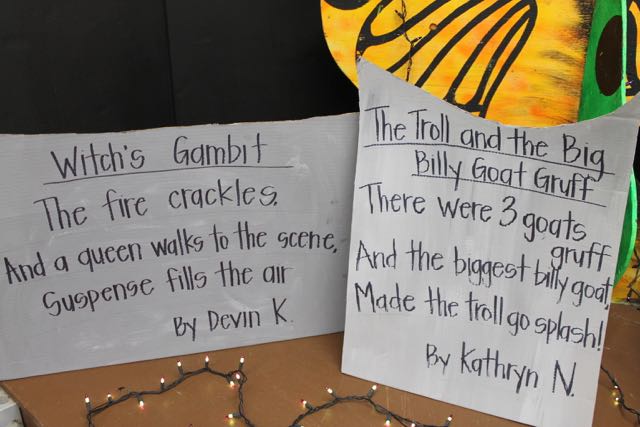 Witch's Gambit
The fire crackles.
And a queen walks to the scene,
Suspense fills the air
By Devin K.
The Troll and the Big
Billy Goat Gruff
There were 3 goats
gruff
And the biggest billy goat,
Made the troll go splash!
By Kathryn N.